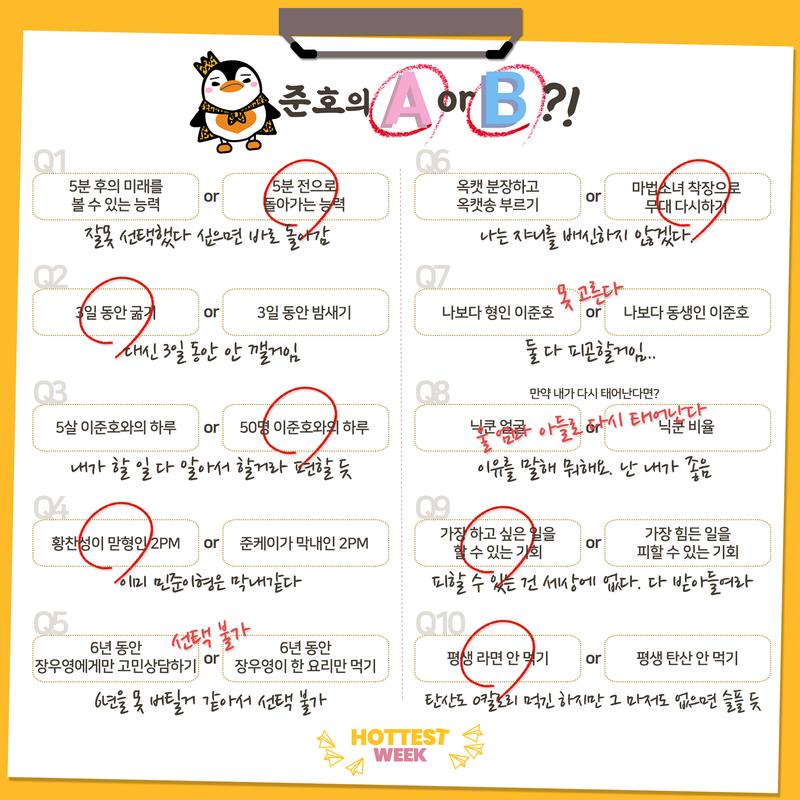 준호의 A or B?!
Q1
5분 후의 미래를
볼 수 있는 능력
or
5분 전으로
돌아가는 능력
잘못 선택했다 싶으면 바로 돌아감
Q2
3일 동안 굶기
or
3일 동안 밤새기
대신 3일 동안 안 깰거임
Q3
5살 이준호와의 하루
or
50명 이준호와의 하루
내가 할 일 다 알아서 할거라 편할 듯
Q4
황찬성이 맏형인 2PM
or
준케이가 막내인 2PM
이미 민준이형은 막내같다
Q5
선택 불가
6년 동안
장우영에게만 고민상담하기
or
6년 동안
장우영이 한 요리만 먹기
6년을 못 버틸거 같아서 선택 불가
Q6
옥캣 분장하고
옥캣송 부르기
or
마법소녀 착장으로
무대 다시하기
나는 쟈니를 배신하지 않겠다.
Q7
못 고른다
나보다 형인 이준호
or
나보다 동생인 이준호
둘 다 피곤할거임..
Q8
만약 내가 다시 태어난다면?
닉쿤 얼굴
or
닉쿤 비율
울 엄마 아들로 다시 태어난다
이유를 말해 뭐해요. 난 내가 좋음
Q9
가장 하고 싶은 일을
할 수 있는 기회
or
가장 힘든 일을
피할 수 있는 기회
피할 수 있는 건 세상에 없다. 다 받아들여라
Q10
평생 라면 안 먹기
or
평생 탄산 안 먹기
탄산도 0칼로리 먹긴 하지만 그 마저도 없으면 슬플 듯
HOTTEST
WEEK